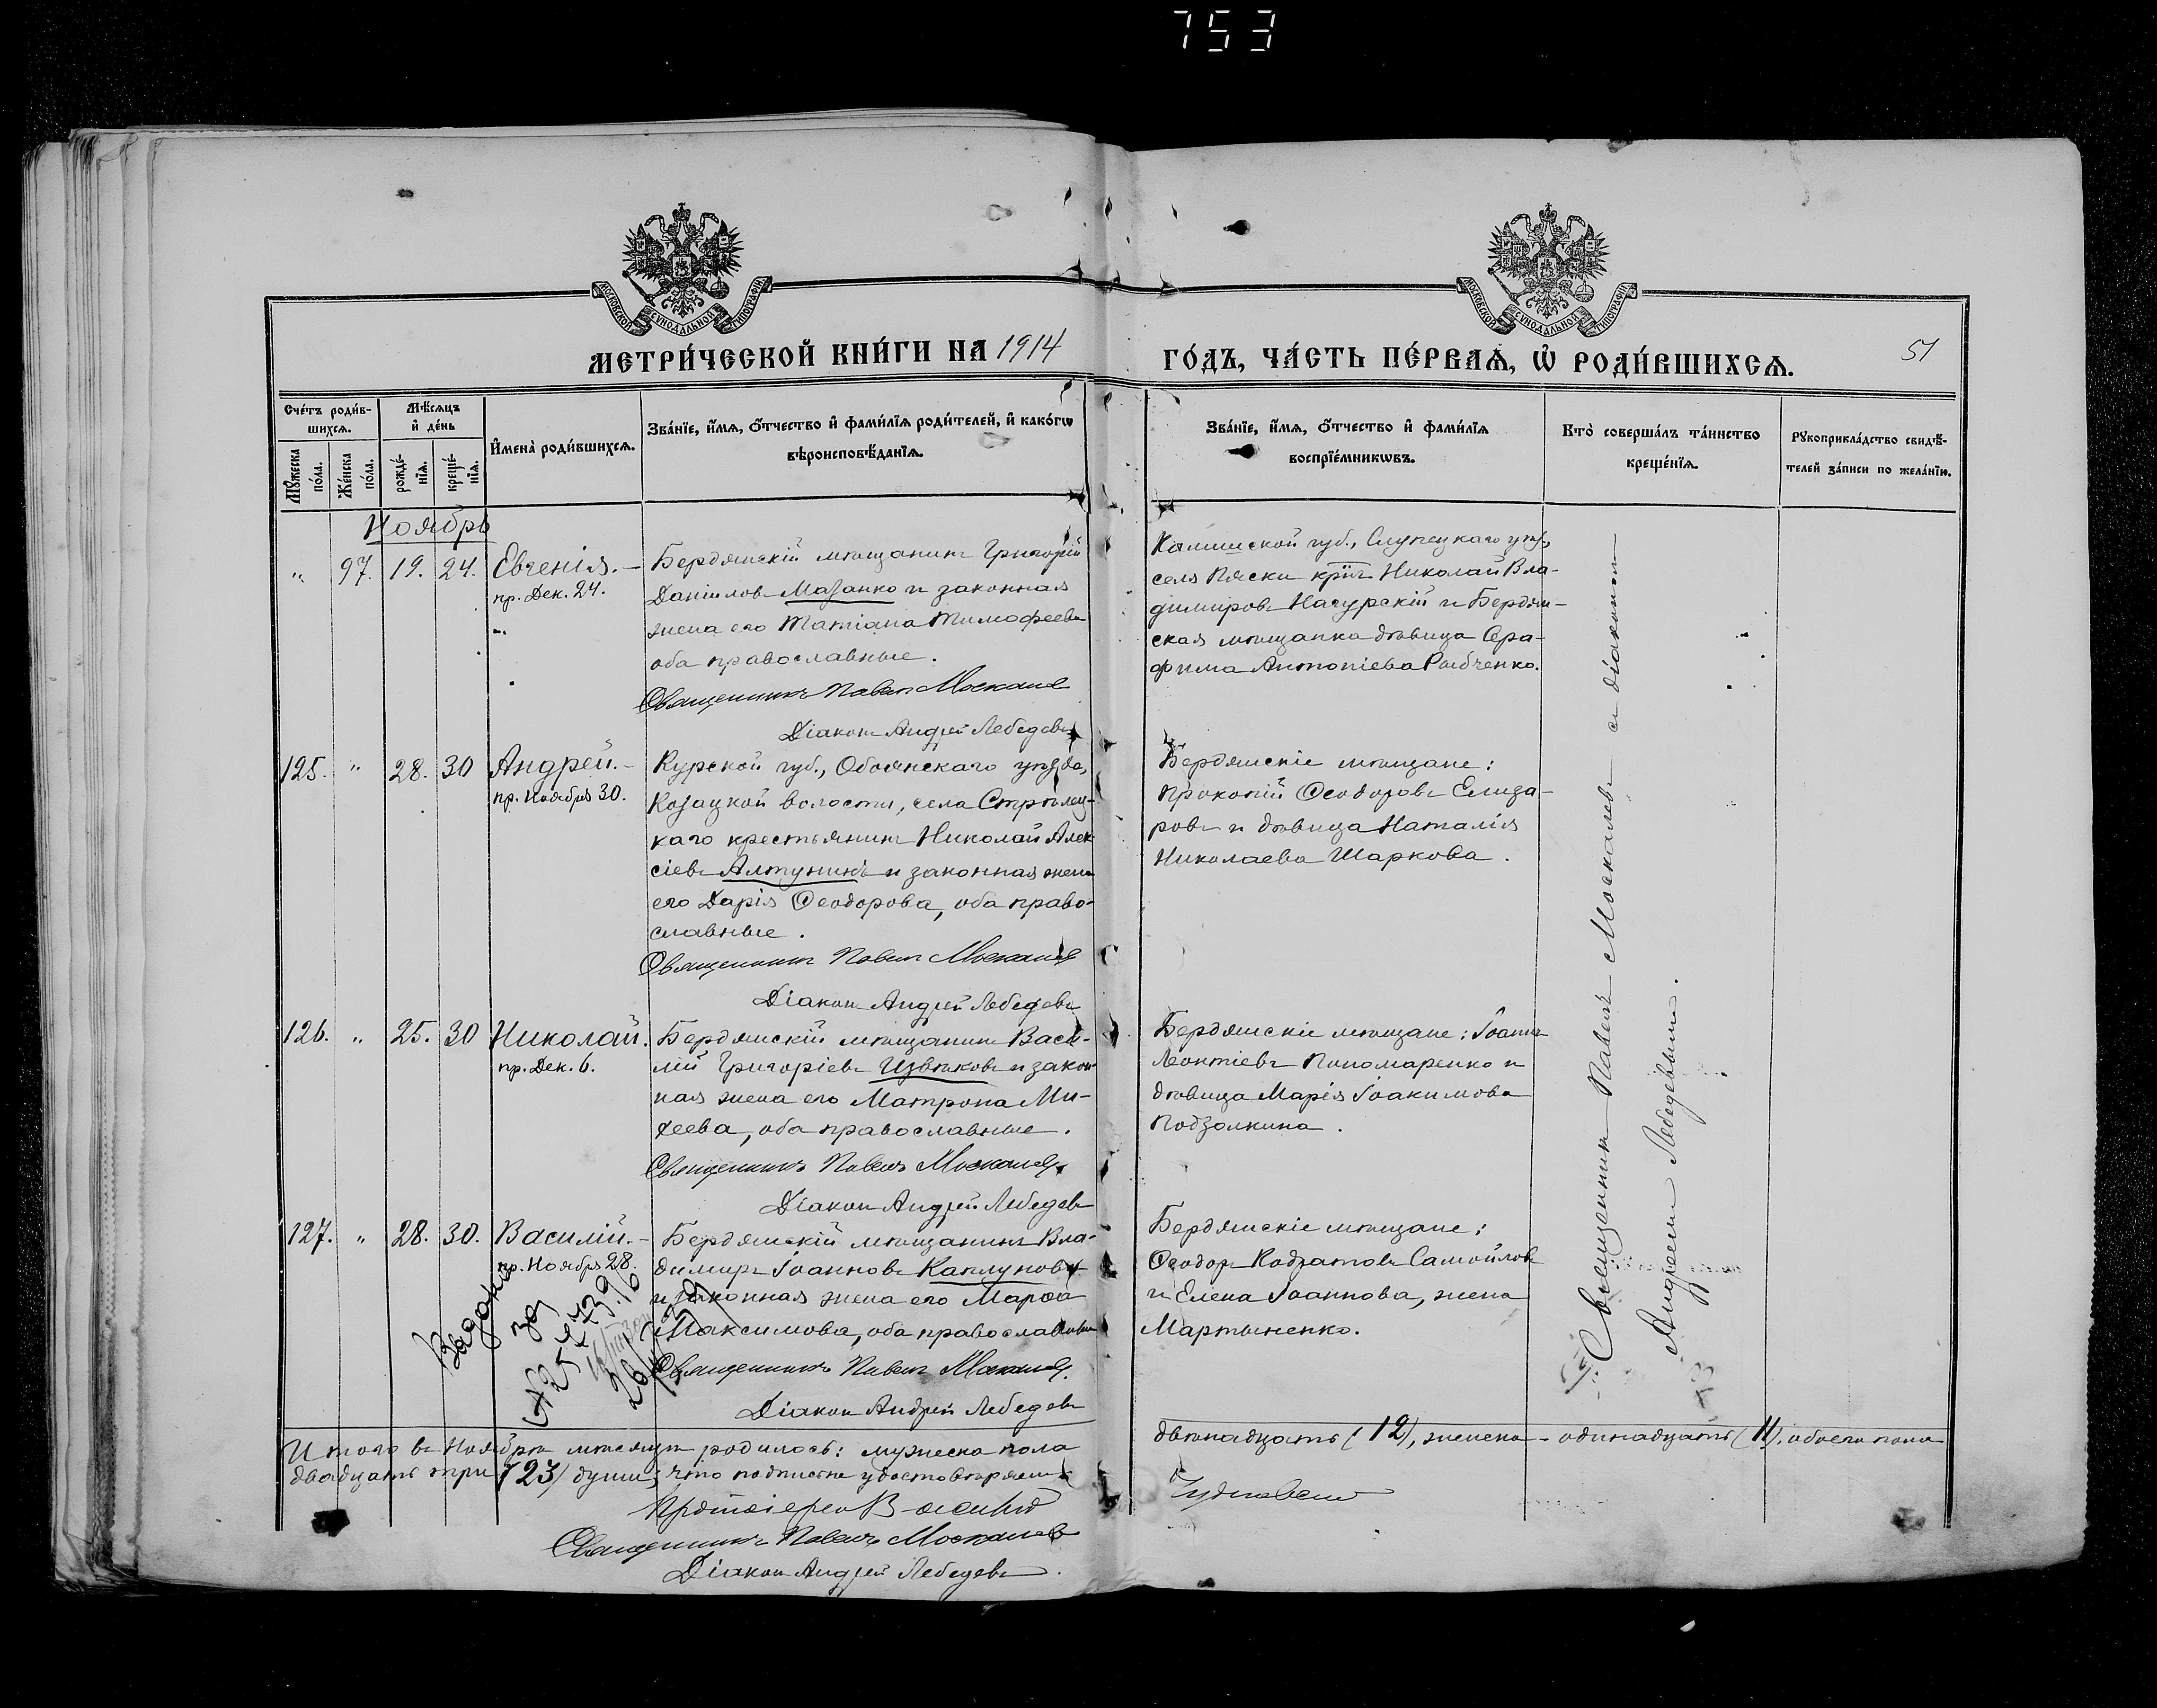 753
МОСКОВСКОЙ СѴНОДАЛЬНОЙ ТИПОГРАФІИ
МОСКОВСКОЙ СѴНОДАЛЬНОЙ ТИПОГРАФІИ
МЕТРИ́ЧЕСКОЙ КНИ́ГИ НА 1914
ГО́ДЪ, ЧА́СТЬ ПЕ́РВАѦ, Ѡ РОДИ́ВШИХСѦ.
51
Сче́тъ роди́в-
шихсѧ.
Мꙋ́жеска
по́ла.
Же́нска
по́ла.
Мѣ́сѧцъ
и҆ де́нь
рожде́-
нїѧ.
креще́-
нїѧ.
И҆мена̀ роди́вшихсѧ.
Зва́нїе, и҆́мѧ, ѻ҆́тчество и҆ фами́лїѧ роди́телей, и҆ како́гѡ
вѣроисповѣ́данїѧ.
Зва́нїе, и҆́мѧ, ѻ҆́тчество и҆ фами́лїѧ
воспрїе́мникѡвъ.
Кто̀ соверша́лъ та́инство
креще́нїѧ.
Рꙋкоприкла́дство свидѣ́-
телей за́писи по жела́нїю.
Ноябрь
" 97. 19. 24. Евгенія.
пр. Дек. 24.
Бердянскій мѣщанинъ Григорій
Даніиловъ Мазанко и законная
жена его Татіана Тимофеева
оба православные.
Священникъ Павелъ Москалевъ
Діаконъ Андрей Лебедевъ
Калишской губ., Слупецкаго уѣз.,
села Пяски крнъ Николай Вла-
димировъ Нагурскій и Бердян-
ская мѣщанка дѣвица Сера-
фима Антоніева Рыбченко.
125. " 28. 30 Андрей.
пр. Ноября 30.
Курской губ., Обоянскаго уѣзда,
Козацкой волости, села Стрѣлец-
каго крестьянинъ Николай Алек
сіевъ Алтунинъ и законная жена
его Дарія Ѳеодорова, оба право-
славные.
Священникъ Павелъ Москалевъ
Діаконъ Андрей Лебедевъ
Бердянскіе мѣщане:
Прокопій Ѳеодоровъ Елиза-
ровъ и дѣвица Наталія
Николаева Шаркова.
126. " 25. 30 Николай.
пр. Дек. 6.
Бердянскій мѣщанинъ Васи-
лій Григоріевъ Цѣвтковъ и закон
ная жена его Матрона Ми-
хеева, оба православные.
Священникъ Павелъ Москалевъ
Діаконъ Андрей Лебедевъ
Бердянскіе мѣщане: Іоаннъ
Леонтіевъ Пономаренко и
дѣвица Марія Іоакимова
Подзолкина.
127. " 28. 30. Василій.
пр. Ноября 28.
Бердянскій мѣщанинъ Вла-
димиръ Іоанновъ Каплуновъ
и законная жена его Марѳа
Максимова, оба православные
Священникъ Павелъ Москалевъ
Діаконъ Андрей Лебедевъ
Бердянскіе мѣщане:
Ѳеодоръ Кодратовъ Самойловъ
и Елена Іоаннова, жена
Мартыненко.
Священникъ Павелъ Москалевъ съ діакономъ
Андреемъ Лебедевымъ.
Итого въ Ноябрѣ мѣсяцѣ родилось: мужеска пола
двѣнадцать (12), женска - одинадцать (11), обоего пола
двадцать три (23) души; что подписью удостовѣряемъ:
Протоіерей
Священникъ Павелъ Москалевъ
Діаконъ Андрей Лебедевъ